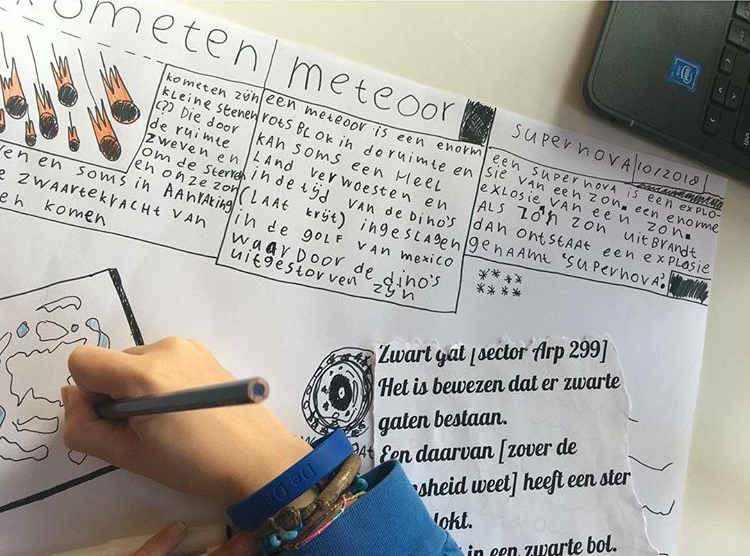 kometen
kometen zijn
kleine stenen
(?) Die door
de ruimte
zweven en
om de sterren
en onze zon
en soms in AANRAKING
zwaartekracht van
komen
meteoor
een meteoor is een enorm
rots BLOK in de ruimte en
kan soms een Heel
Land verwoesten en
in de tijd van de Dino's
(LAAT krijt) ingeslagen
in de golf van mexico
waardoor de dino's
uitgestorven zijn
supernova 10/2018
een supernova is een explo-
sie van een zon. een enorme
explosie van een zon.
ALS zo'n zon uitbrandt
dan ontstaat een explosie
genaamt 'supernova'.
Zwart gat [sector Arp 299]
Het is bewezen dat er zwarte
gaten bestaan.
Een daarvan [zover de
weet] heeft een ster
in een zwarte bol.
intel